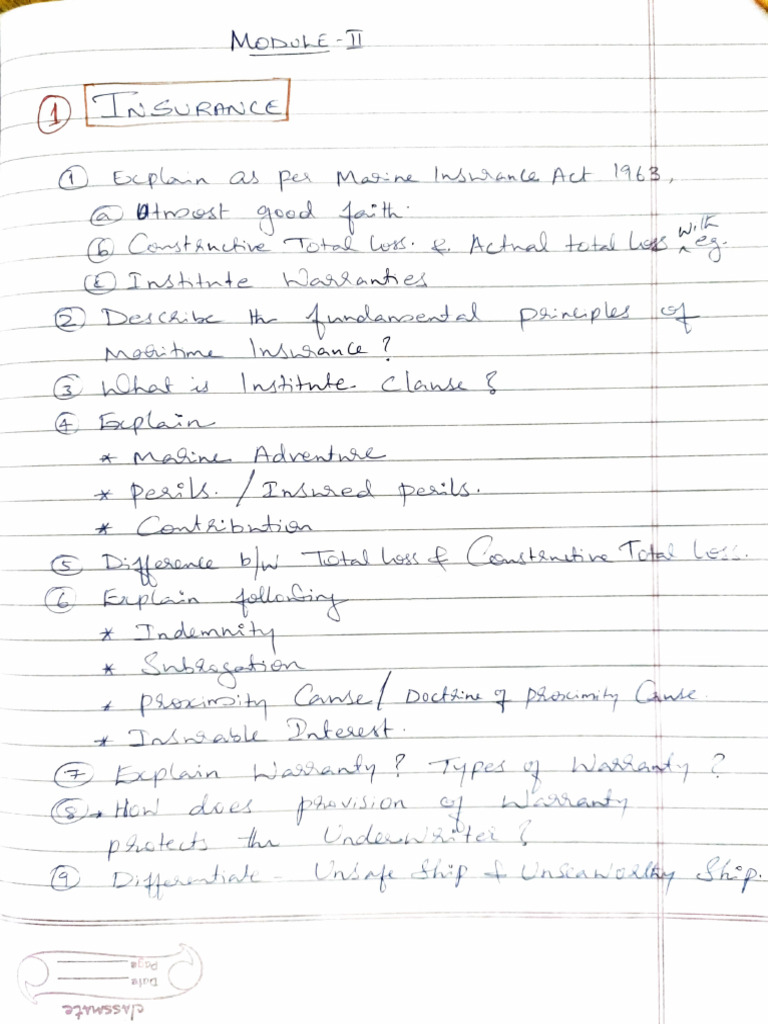 MODULE-II
① INSURANCE
① Explain as per Marine Insurance Act 1963,
ⓐ Utmost good faith.
ⓑ Constructive Total Loss. & Actual total Loss with eg.
ⓒ Institute Warranties
② Describe the fundamental principles of
Maritime Insurance?
③ What is Institute Clause?
④ Explain
* Marine Adventure
* Perils. / Insured perils.
* Contribution
⑤ Difference b/w Total Loss & Constructive Total Loss.
⑥ Explain following
* Indemnity
* Subrogation
* Proximity Cause / Doctrine of Proximity Cause.
* Insurable Interest.
⑦ Explain Warranty? Types of Warranty?
⑧ → How does provision of Warranty
protects the Underwriter?
⑨ Differentiate - Unsafe Ship & Unseaworthy Ship.
classmate
Date
Page